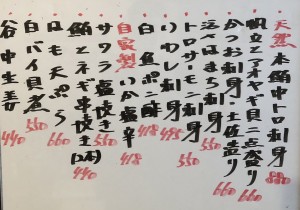 天然 本鮪中トロ刺身 880
帆立とアオヤギ貝二点盛り 880
かつお刺身・土佐造り 660
活〆はまち刺身
トロサーモン刺身 550
いわし刺身 495
白魚ポン酢 418
自家製 いか塩辛 418
サワラ塩焼き 550
鮪とネギ串焼き(2本) 440
はも天ぷら 660
白バイ貝煮 550
谷中生姜 440